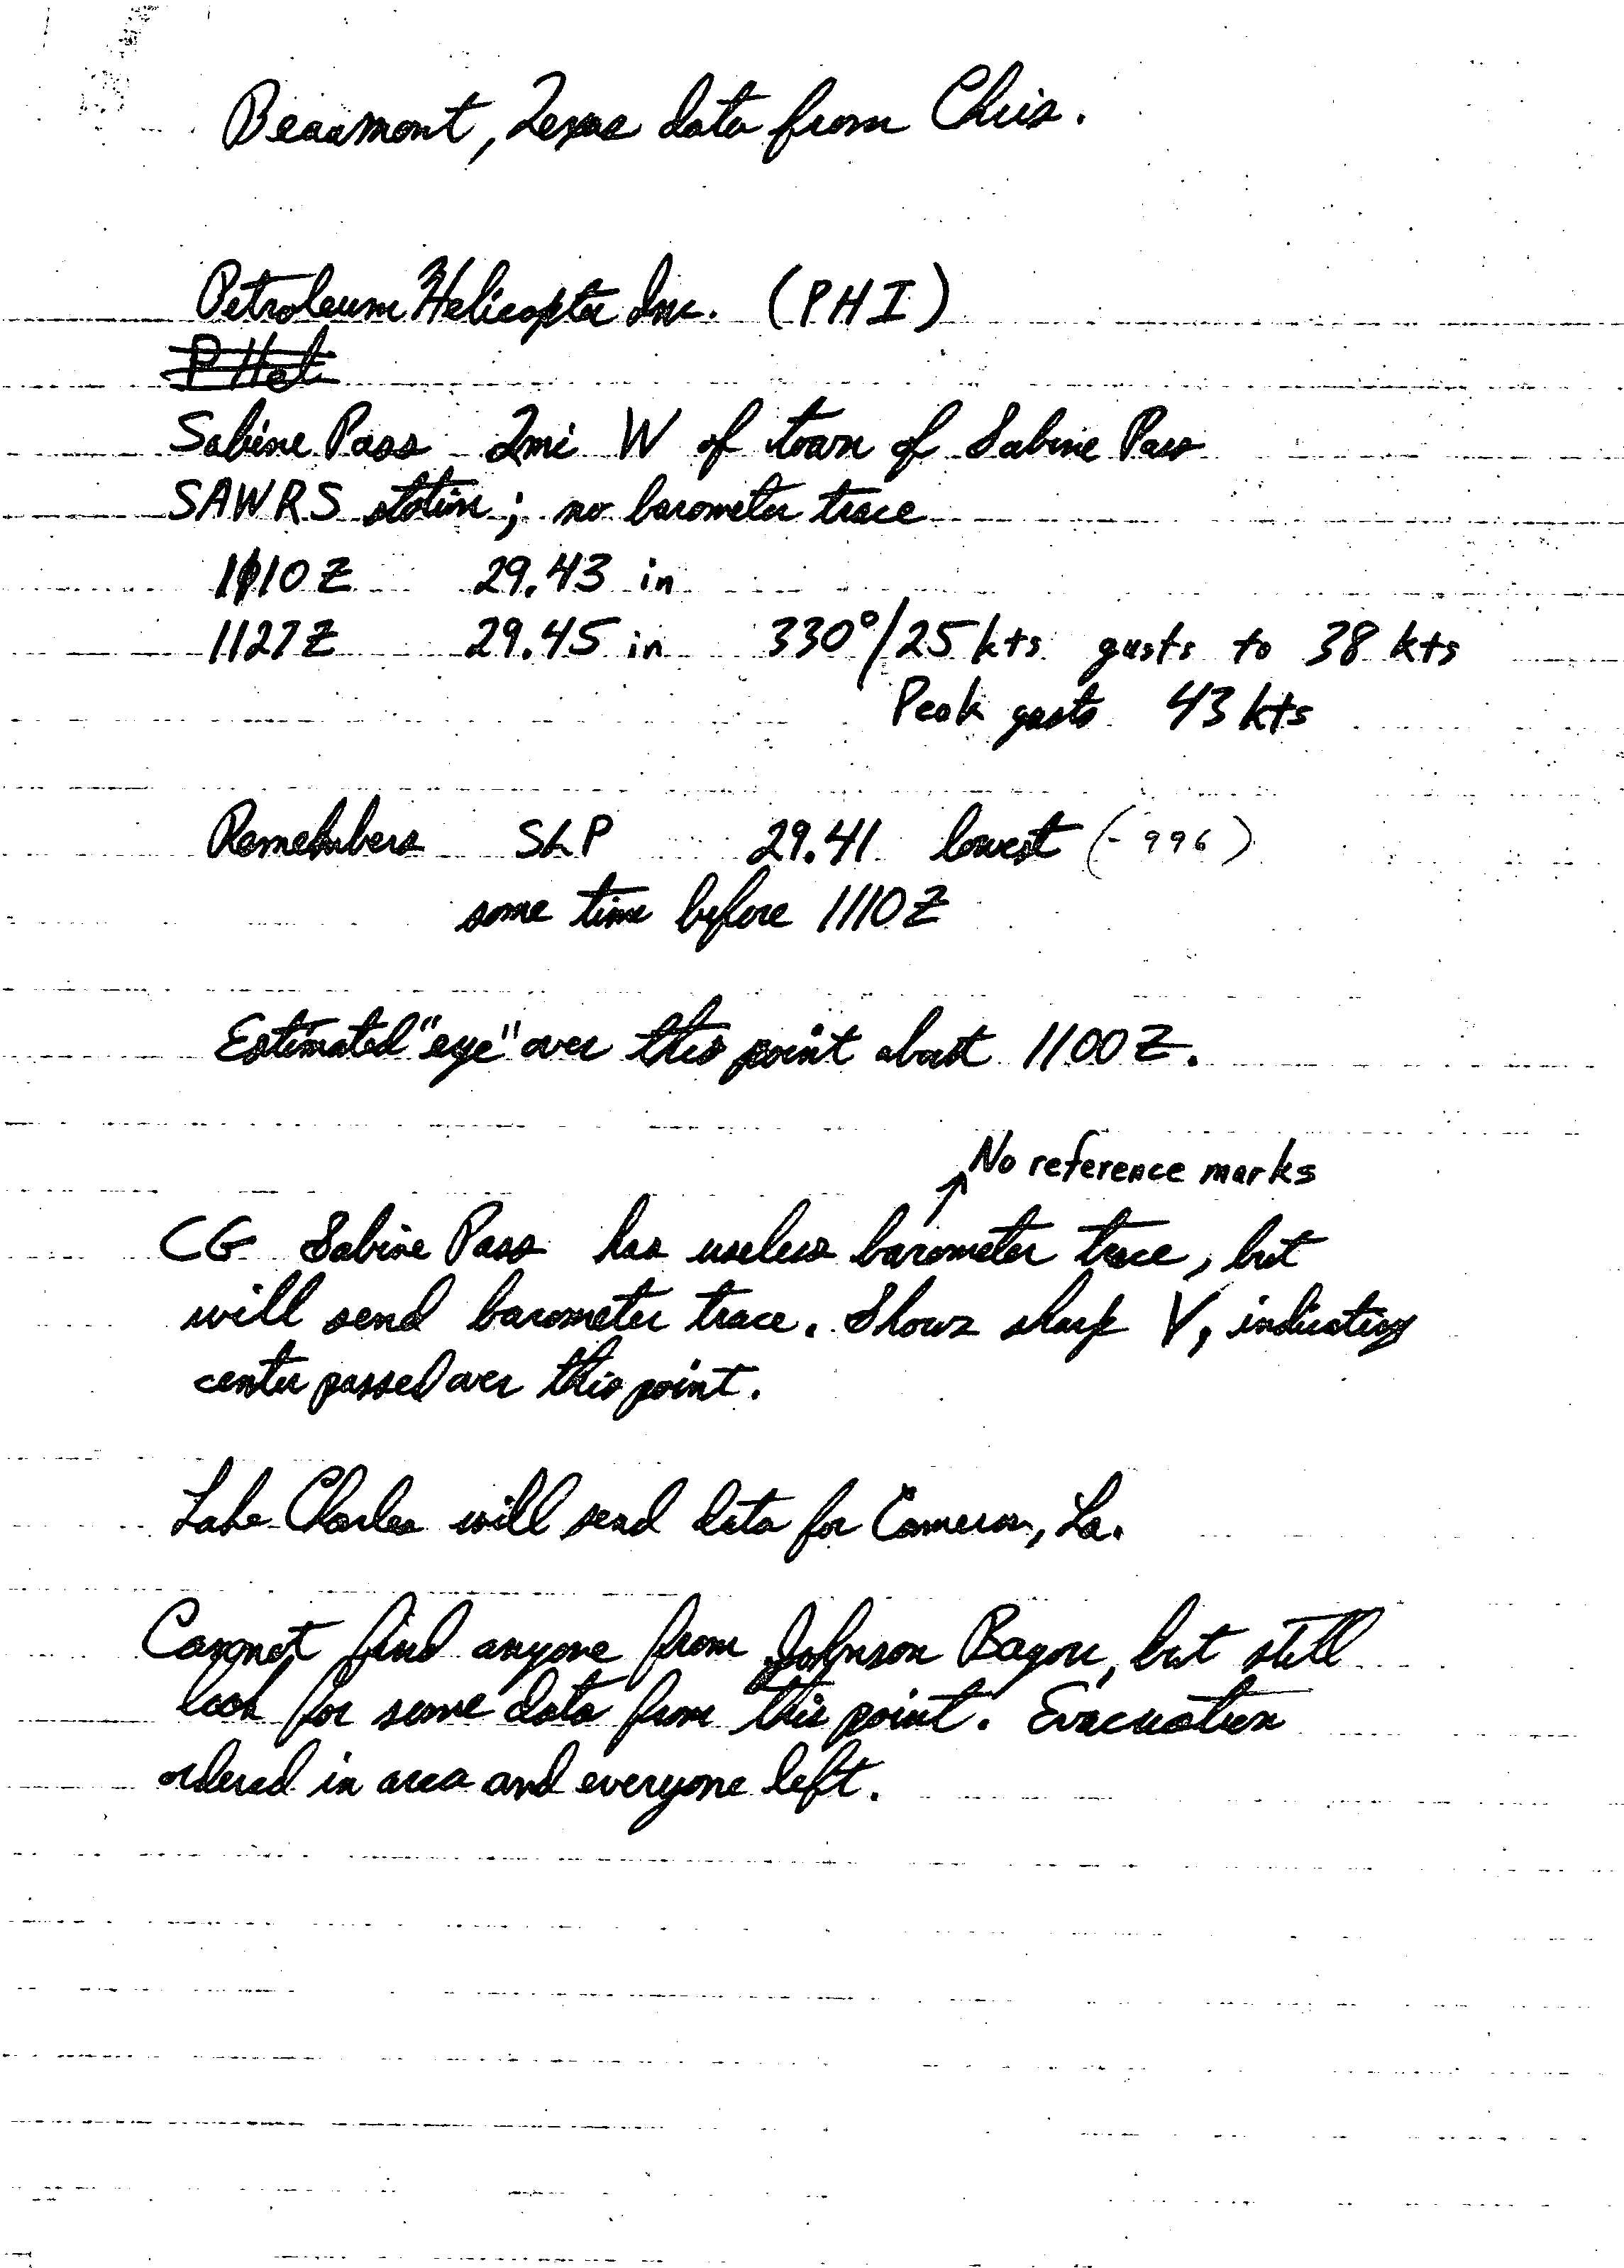 Beaumont, Texas data from Chris.
Petroleum Helicopter Inc. (PHI)
P Hel
Sabine Pass 2mi W of town of Sabine Pass
SAWRS station; no barometer trace
1110Z 29.43 in
1127Z 29.45 in 330°/25 kts gusts to 38 kts
Peak gusts 43 kts
Remembers SLP 29.41 lowest (-996)
some time before 1110Z
Estimated "eye" over this point about 1100Z.
No reference marks
CG Sabine Pass has useless barometer trace, but
will send barometer trace. Shows sharp V, indicating
center passed over this point.
Lake Charles will send data for Cameron, La.
Cannot find anyone from Johnson Bayou, but still
look for some data from this point. Evacuation
ordered in area and everyone left.